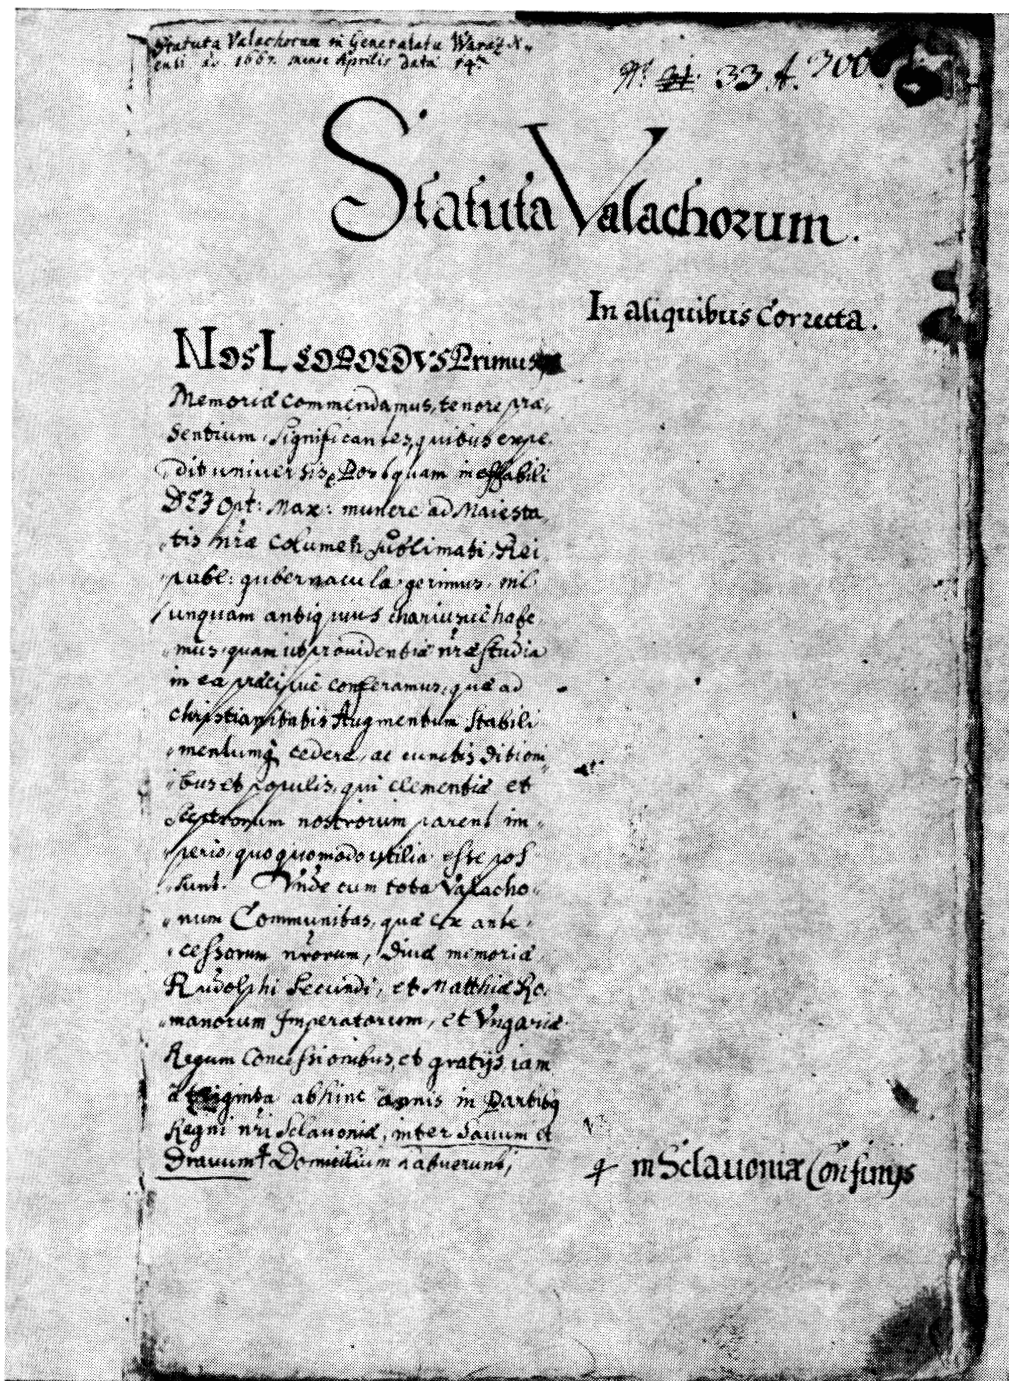 Statuta Valachorum in Generalatu Waraz
ensi ao 1667. mense Aprilis data 14ta
No 31. 33. A. 3006
Statuta Valachorum.
In aliquibus Correcta.
Nos LEOPOLDVS Primus
Memoriæ commendamus, tenore præ„
sentium significantes, quibus expe„
„dit universis, Postquam ineffabili
DEJ Opt: Max: munere ad Maiesta„
„tis nr̃æ columen sublimati, Rei
„publ: gubernacula gerimus, nil
unquam antiquius chariusuè habe„
„mus, quam ut prouidentiæ nr̃æ studia
in ea præcipuè conferamus, quæ ad
christianitatis Augmentum stabili
„mentumq; cedere, ac cunctis ditioni„
„bus et populis, qui clementiæ et
sceptrorum nostrorum parent im„
„perio, quoquomodo utilia esse pos„
„sunt. Vnde cum tota Valacho„
„rum Communitas, quæ ex ante„
„cessorum nr̃orum, diuæ memoriæ
Rudolphi Secundi, et Matthiæ Ro„
„manorum Imperatorum, et Vngariæ
Regum Concessionibus, et gratijs iam
à triginta abhinc annis in Partibq
Regni nr̃i Sclavoniæ, inter Sauum et
Drauum Domicilium habuerunt,
in Sclauoniæ Confinijs